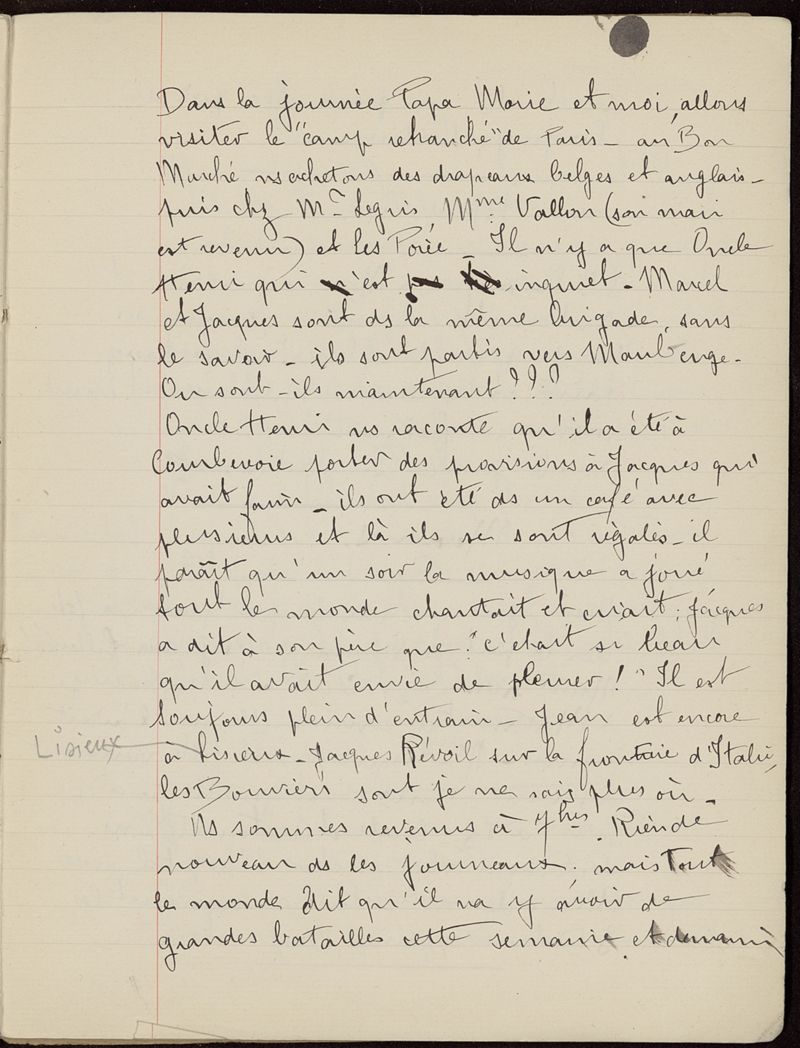 Dans la journée Papa Marie et moi, allons
visiter le "camp retranché" de Paris - au Bon
Marché ns achetons des drapeaux belges et anglais -
puis chez Mr Leguis, Mme Vallon (son mari
est revenu) et les Porée - Il n'y a que Oncle
Henri qui n'est pas inquiet - Marcel
et Jacques sont ds la même brigade, sans
le savoir - ils sont partis vers Maubeuge.
Ou sont-ils maintenant ???
Oncle Henri ns raconte qu'il a été à
Courbevoie porter des provisions à Jacques qui
avait faim - ils ont été ds un café avec
plusieurs et là ils se sont régalés - il
paraît qu'un soir la musique a joué
tout le monde chantait et criait ; Jacques
a dit à son père que : "c'était si beau
qu'il avait envie de pleurer !" Il est
toujours plein d'entrain - Jean est encore
Lisieux
à Lisieux - Jacques Révoil sur la frontière d'Italie,
les Bouviers sont je ne sais plus où -
Ns sommes revenus à 7hres. Rien de
nouveau ds les journeaux. mais tout
le monde dit qu'il va y avoir de
grandes batailles cette semaine et demain